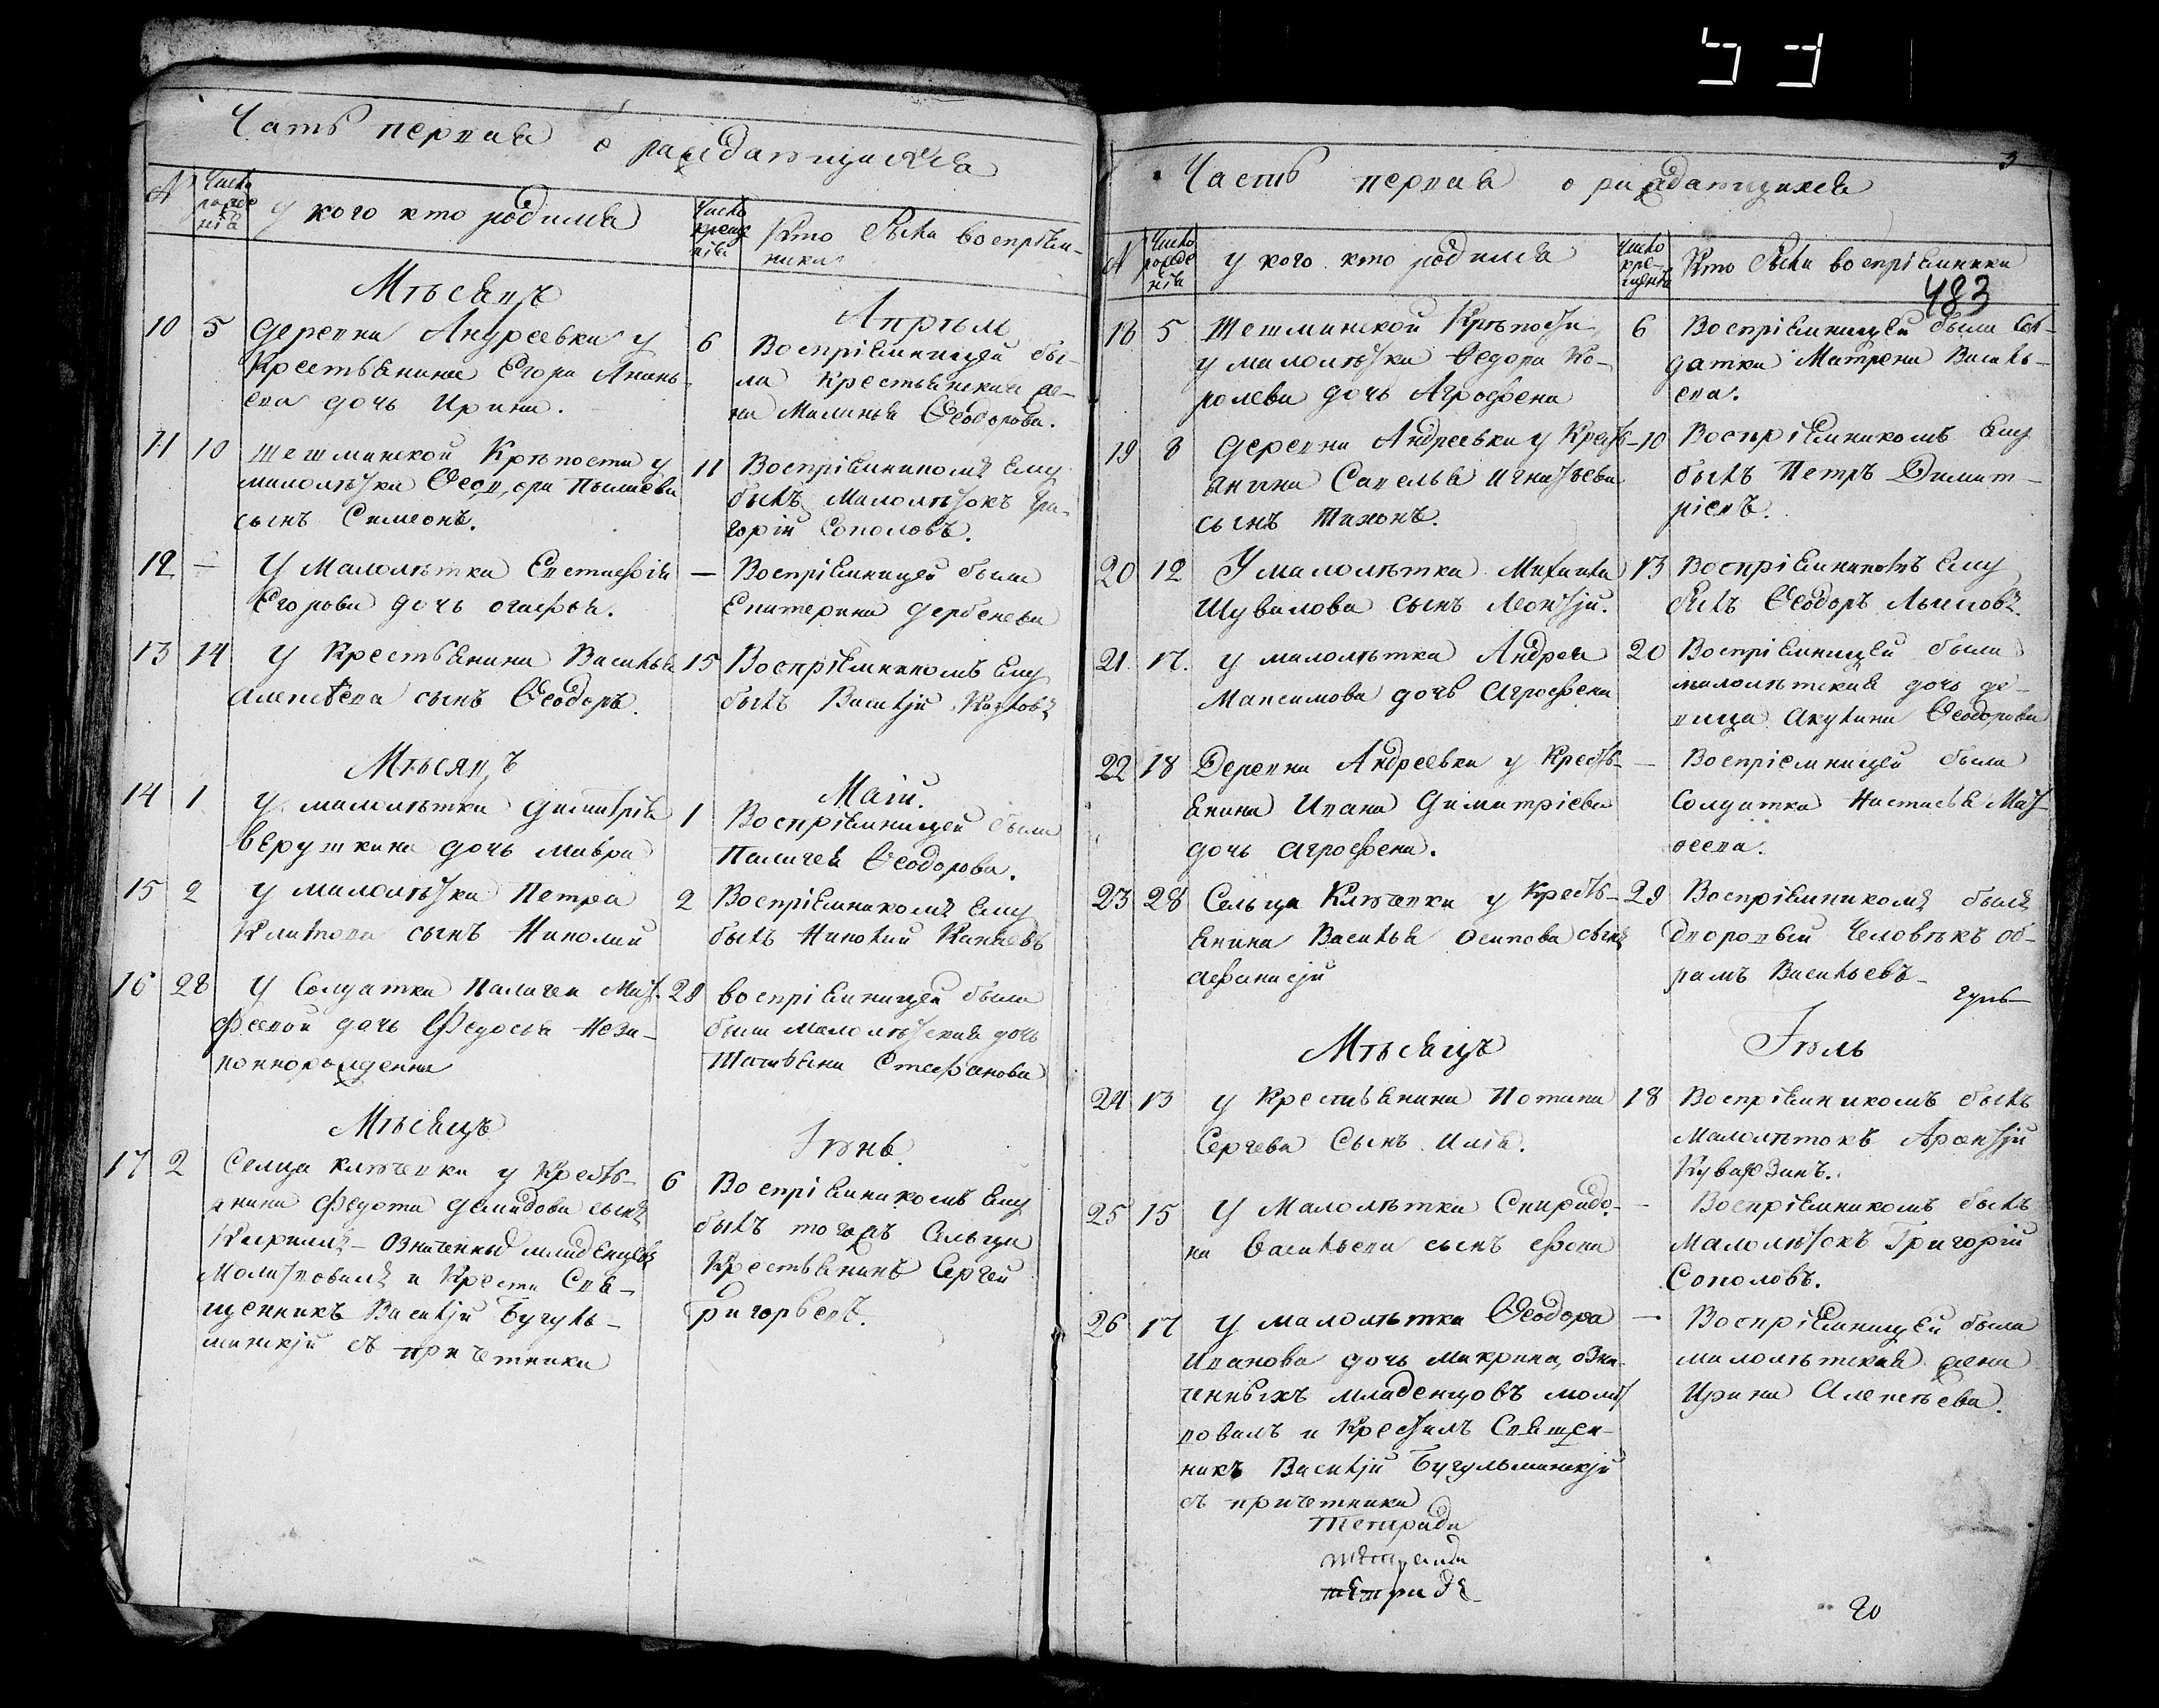 Часть первая о раждающихся
№
Число рожденія
у кого кто родился
Число крещенія
Кто были воспріем-
ники
Мѣсяцъ
Апрѣль
10 5 деревни Андреевки у
Крестьянина Егора Анань-
ева дочь Ирина.
6 Воспріемницей бы-
ла Крестьянская же-
на Маланья Ѳеодорова.
11 10 Шешминской Крѣпости у
малолѣтка
сынъ Симеонъ.
11 Воспріемникомъ ему
былъ Малолѣтокъ Гри-
горій Соколовъ.
12 — У Малолѣтка Евстаѳія
Егорова дочь огафья.
— Воспріемницей была
Екатерина дербенева
13 14 У Крестьянина Василья
алексѣева сынъ Ѳеодоръ.
15 Воспріемникомъ ему
былъ Василій Козловъ
Мѣсяцъ
Маій.
14 1 у малолѣтка димитрія
верушкина дочь мавра
1 Воспріемницей была
Палагея Ѳеодорова.
15 2 у малолѣтка Петра
сынъ Николай
2 Воспріемникомъ ему
былъ Николай
16 28 У Солдатки Палагеи Мат-
феевой дочь Федосья Неза-
коннорожденна
28 воспріемницей была
была малолѣтская дочь
Татьяна Стефанова
Мѣсяцъ
Іюнь.
17 2 Селца ключевки у Кресть-
янина Федота демидова сынъ
Кирилъ – Означенныхъ младенцевъ
Молитвовалъ и Крести Свя-
щенникъ Василій Бугуль-
минскій съ причетники
6 Воспріемникомъ ему
былъ тогожъ Сельца
Крестьянинъ Сергей
Григорьевъ.
3
Часть первая о раждающихся
№
Число рожденія
у кого кто родился
Число крещенія
Кто были воспріемники
483
18 5 Шешминской Крѣпости
у малолѣтка Ѳедора Ко-
ролева дочь Агроѳена
6 Воспріемницей была Сол-
датка Матрена Василь-
ева.
19 8 деревни Андреевки у Кресть-
янина Савелья игнатьева
сынъ Тихонъ.
10 Воспріемникомъ ему
былъ Петръ Димит-
ріевъ.
20 12 У малолѣтка Михаила
Шувалова сынъ Леонтій.
13 Воспріемникомъ ему
былъ Ѳеодоръ
21 17. у малолѣтка Андрея
Максимова дочь Агроѳена
20 Воспріемницей была
малолѣтская дочь де-
вица акулина Ѳеодорова
22 18 Деревни Андреевки у Кресть-
янина Ивана Димитріева
дочь агроѳена.
— Воспріемницей была
Солдатка Настасья Мат-
веева.
23 28 Сельца Ключевки у Кресть-
янина Василья осипова сынъ
аѳанасій
29 Воспріемникомъ былъ
Дворовый Человѣкъ Аб-
рамъ Васильевъ –
Мѣсяцъ
Іюль
24 13 у Крестьянина Потапа
Сергева Сынъ. илія.
18 Воспріемникомъ былъ
Малолѣтокъ
25 15 У Малолѣтка Спиридо-
на Васильева сынъ ѳома
— Воспріемникомъ былъ
Малолѣтокъ Григорій
Соколовъ.
26 17 у малолѣтка Ѳеодора
иванова дочь макрина, озна-
ченныхъ младенцовъ молит
вовалъ и Крестилъ Священ-
никъ Василій Бугульминскій
съ причетники
— Воспріемницей была
малолѣтская жена
Ирина Алексѣева.
Тетради
тетради
тетради
20